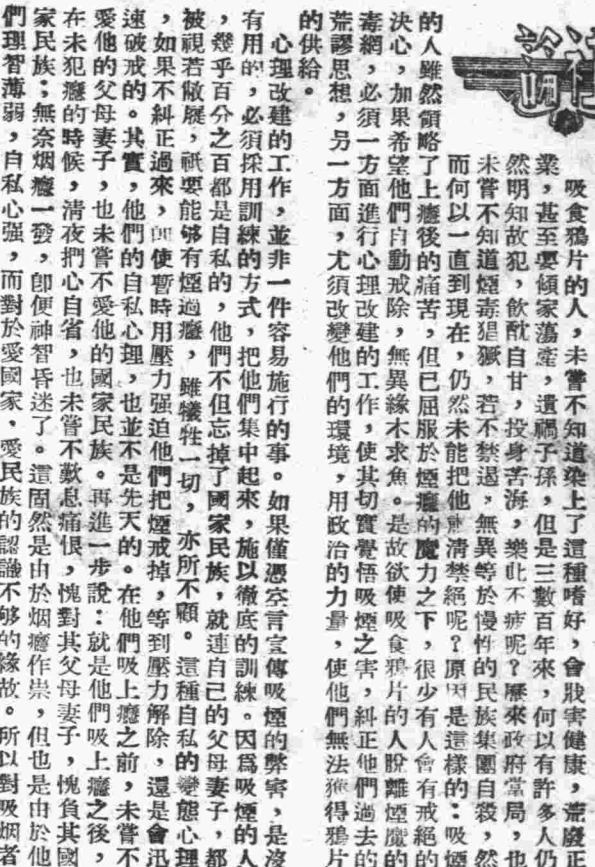 社論
吸食鴉片的人，未嘗不知道染上了這種嗜好，會戕害健康，荒廢正
業，甚至要傾家蕩產，遺禍子孫，但是三數百年來，何以有許多人仍
然明知故犯，飲酖自甘，投身苦海，樂此不疲呢？歷來政府當局，也
未嘗不知道煙毒猖獗，若不禁遏，無異等於慢性的民族集團自殺，然
而何以一直到現在，仍然未能把他們清禁絕呢？原因是這樣的：吸煙
的人雖然領略了上癮後的痛苦，但已屈服於煙癮的魔力之下，很少有人會有戒絕的
決心，加果希望他們自動戒除，無異緣木求魚。是故欲使吸食鴉片的人脫離煙魔的
毒網，必須一方面進行心理改建的工作，使其切實覺悟吸煙之害，糾正他們過去的
荒謬思想，另一方面，尤須改變他們的環境，用政治的力量，使他們無法獲得鴉片
的供給。
心理改建的工作，並非一件容易施行的事。如果僅憑空言宣傳吸煙的弊害，是沒
有用的，必須採用訓練的方式，把他們集中起來，施以徹底的訓練。因爲吸煙的人
，幾乎百分之百都是自私的，他們不但忘掉了國家民族，就連自己的父母妻子，都
被視若敝屣，祇要能够有煙過癮，雖犧牲一切，亦所不顧。這種自私的變態心理
，如果不糾正過來，卽使暫時用壓力强迫他們把煙戒掉，等到壓力解除，還是會迅
速破戒的。其實，他們的自私心理，也並不是先天的。在他們吸上癮之前，未嘗不
愛他的父母妻子，也未嘗不愛他的國家民族。再進一步說：就是他們吸上癮之後，
在未犯癮的時候，清夜捫心自省，也未嘗不歎息痛恨，愧對其父母妻子，愧負其國
家民族；無奈烟癮一發，卽便神智昏迷了。這固然是由於烟癮作祟，但也是由於他
們理智薄弱，自私心强，而對於愛國家、愛民族的認識不够的緣故。所以對吸烟者